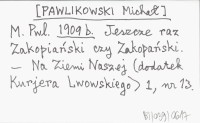 [PAWLIKOWSKI Michał]
M. Pwl. 1909 b. Jeszcze raz
Zakopiański czy Zakopański.
— Na Ziemi Naszej (dodatek
Kurjera Lwowskiego) 1, nr 13.